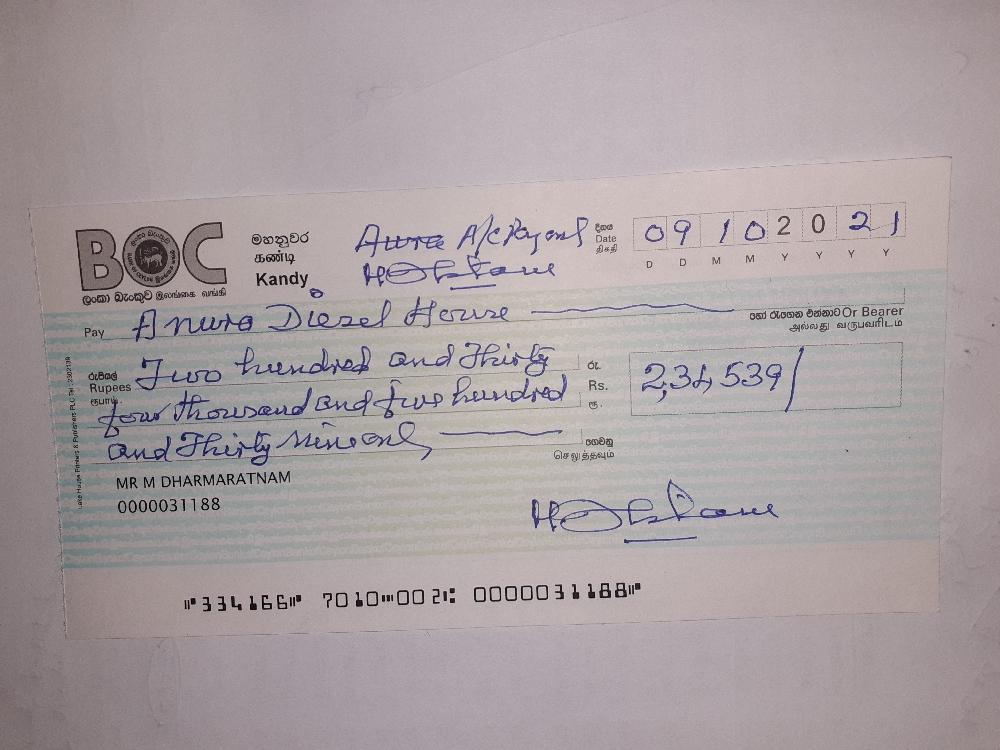 BOC
ලංකා බැංකුව இலங்கை வங்கி
මහනුවර
கண்டி
Kandy
A/C Payee
දිනය
Date
திகதி
09 10 2021
D D M M Y Y Y Y
Pay Anura Diesel House හෝ රැගෙන එන්නාට Or Bearer
அல்லது வருபவரிடம்
රුපියල්
Rupees
ரூபாய்
Two hundred and Thirty
four thousand and five hundred
and Thirty Nine only
රු.
Rs.
ரூ.
2,34 539/
ගෙවනු
செலுத்தவும்
MR M DHARMARATNAM
0000031188
Lake House Printers & Publishers PLC
⑈334166⑈ 7010⑉002⑆ 0000031188⑈